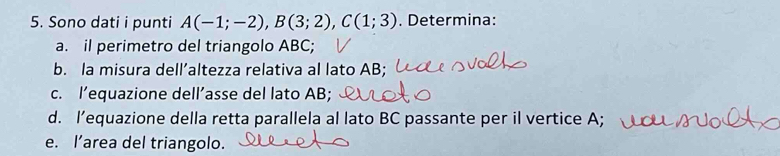 5. Sono dati i punti A(−1; −2), B(3; 2), C(1; 3). Determina:
a. il perimetro del triangolo ABC; V
b. la misura dell'altezza relativa al lato AB; non svolto
c. l'equazione dell'asse del lato AB; errato
d. l'equazione della retta parallela al lato BC passante per il vertice A; non svolto
e. l'area del triangolo. errato